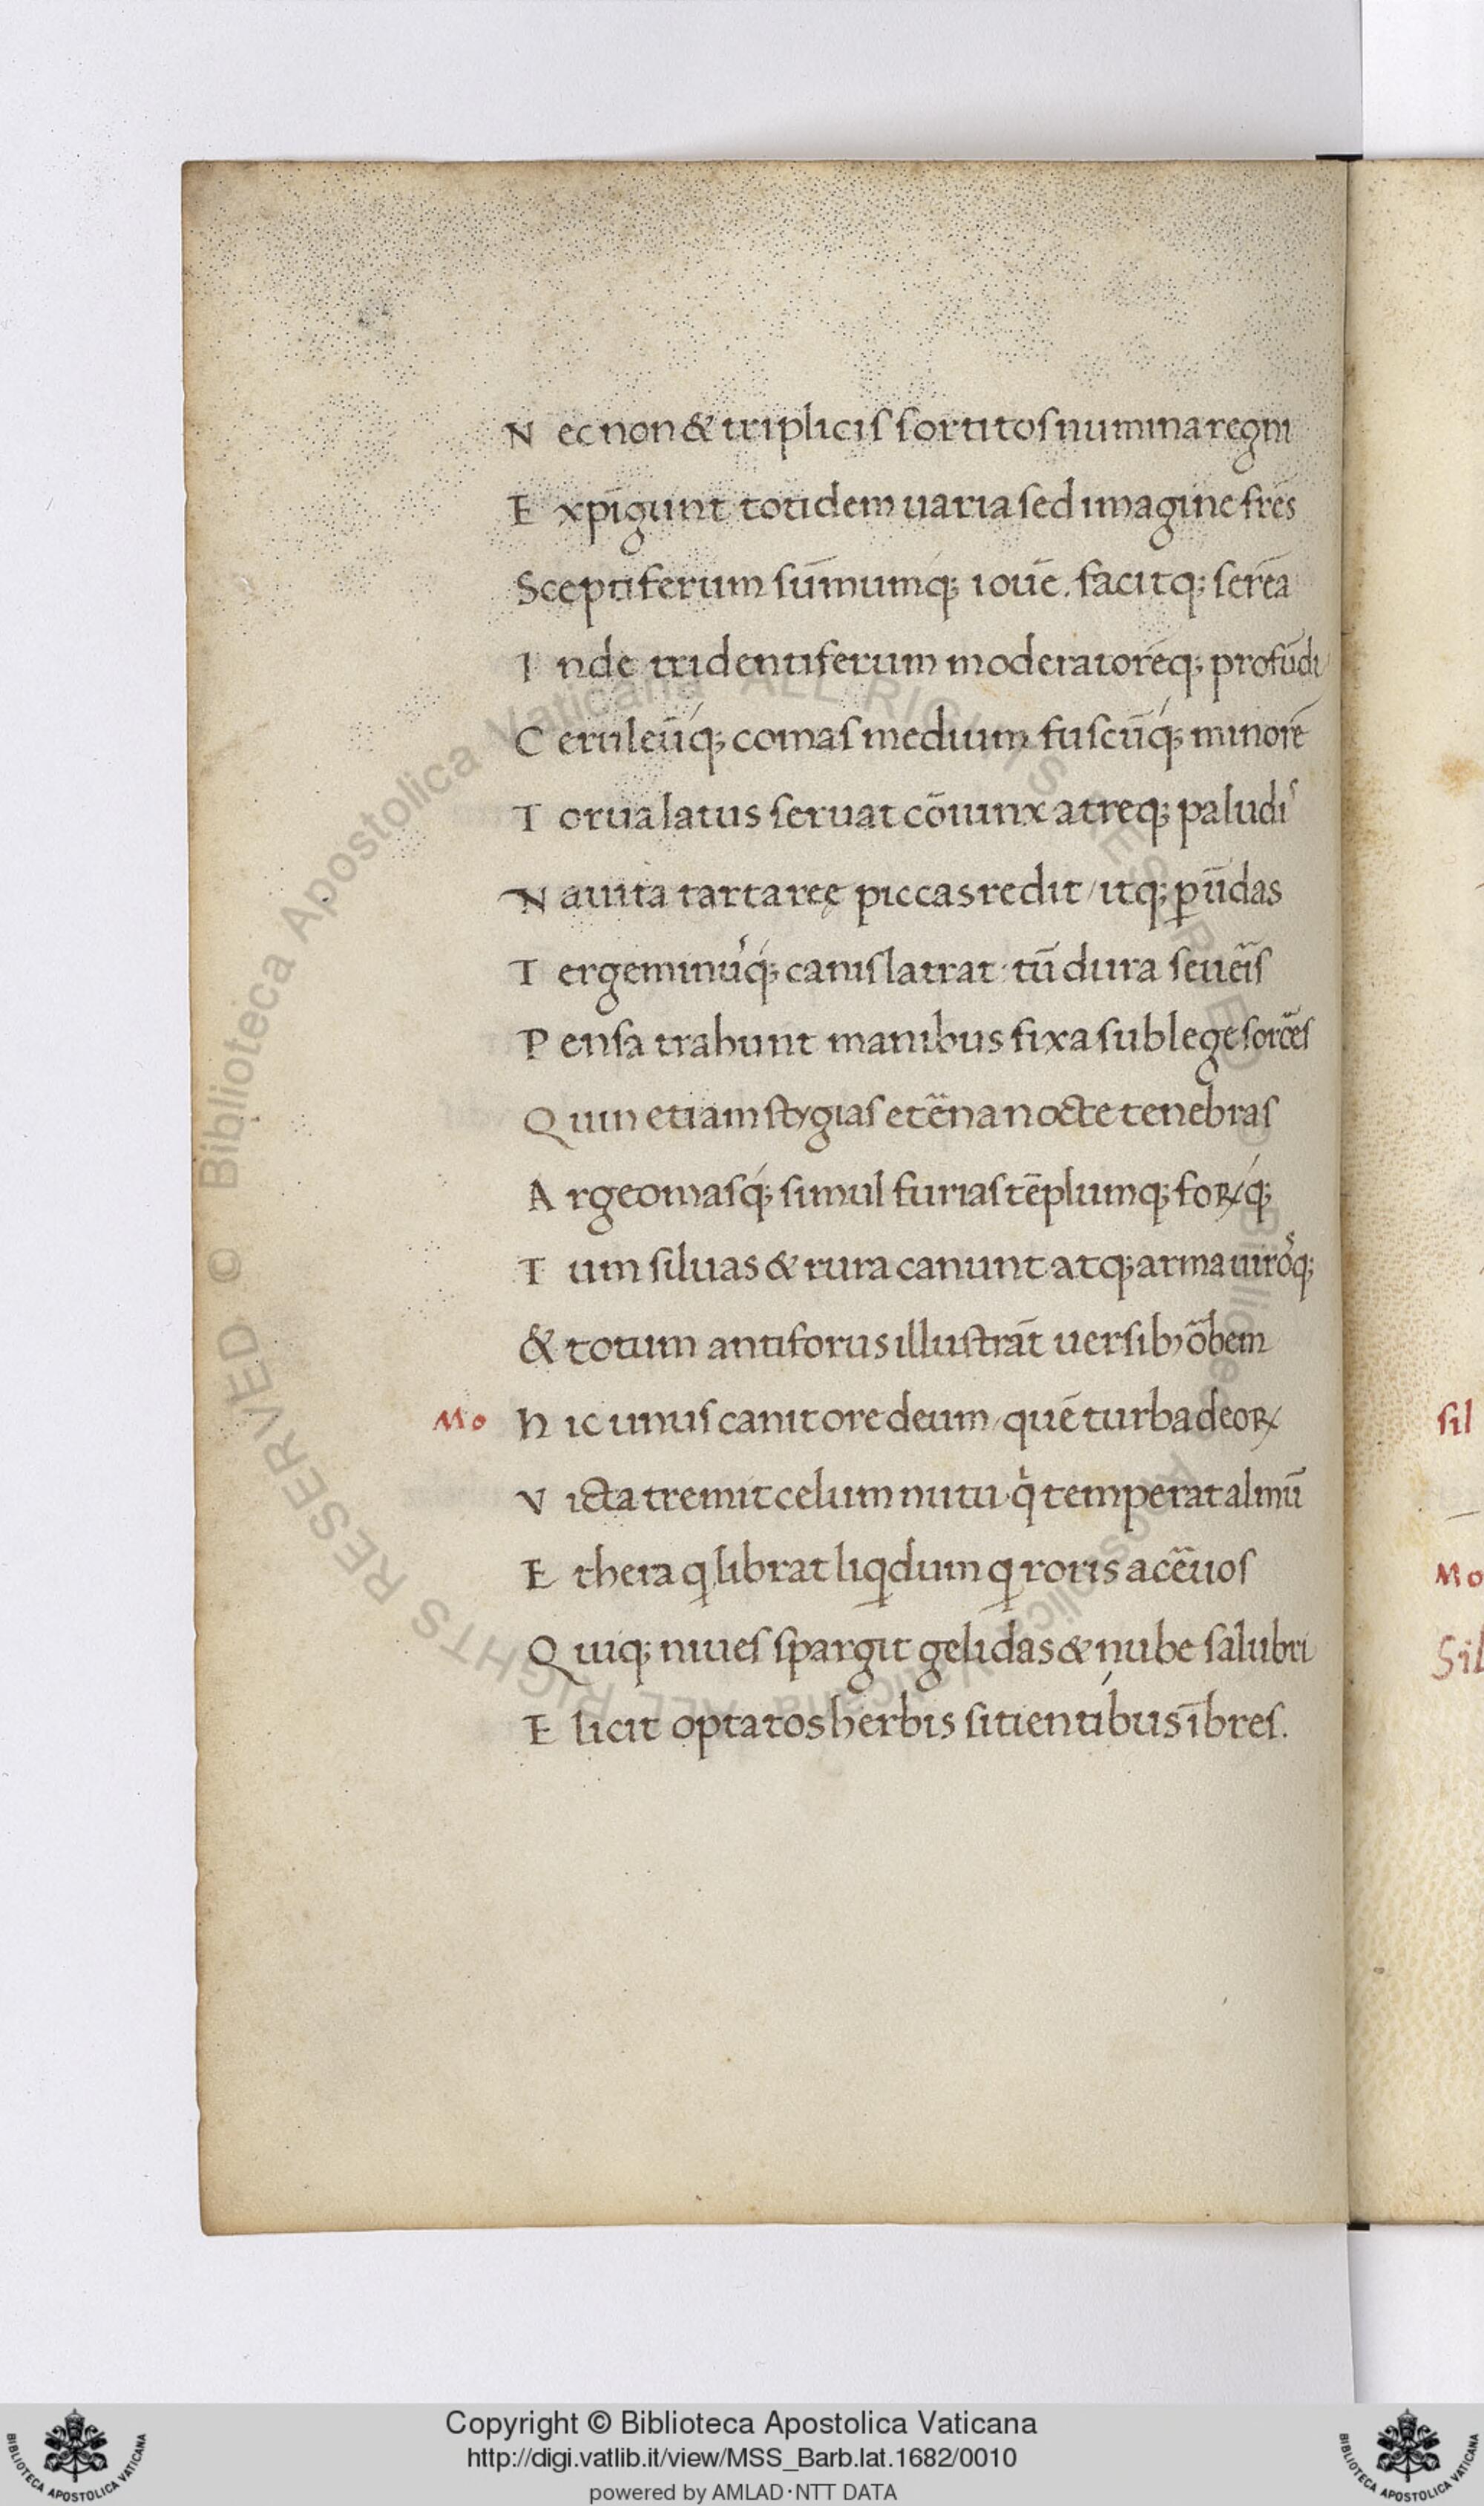 N ec non & triplicis sortitos numina regni
E xpīgunt totidem uaria sed imagine frēs
Sceptiferum sūmumq; iouē. facitq; serēa
I nde tridentiferum moderatorēq; profūdi
C eruleūq; comas medium fuscūq; minorē
T orua latus seruat cōiunx atreq; paludis
N auita tartareę piceas redit / itq; ꝑ ūdas
T ergeminusq; canis latrat: tū dura seuēis
P ensa trahunt manibus fixa sub lege sorōes
Q uin etiam stygias etēna nocte tenebras
A rgeomasq; simul furias tēplumq; foꝝq;
T um siluas & rura canunt atq; arma uirosq;
& totum antiforus illustrāt uersibꝰ ōbem
Mo H ic unus canit ore deum / quē turba deoꝝ
V icta tremit celum nutu q temperat almū
E thera q librat liqdum q roris acēuos
Q uiq; niues spargit gelidas & nube salubri
E licit optatos herbis sitientibus ībres.
sil
Mo
Sil
Copyright © Biblioteca Apostolica Vaticana
http://digi.vatlib.it/view/MSS_Barb.lat.1682/0010
powered by AMLAD·NTT DATA
BIBLIOTECA APOSTOLICA VATICANA
BIBLIOTECA APOSTOLICA VATICANA
© Biblioteca Apostolica Vaticana ALL RIGHTS RESERVED
© Biblioteca Apostolica Vaticana ALL RIGHTS RESERVED